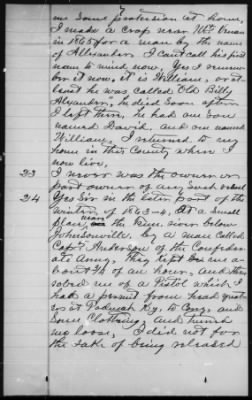 me some protection at home,
I made a crop near Mt. Vernon
in 1865 for a man by the name
of Allexander, I cant call his first
name to mind now, Yes I remem
ber it now, it is William, or at
least he was called Old Billy
Alexander, he died soon after
I left them, he had one son
named David, and one named
William, I returned to my
home in this County where I
now live,
23 I never was the owner or
part owner of any such vessel
24 Yes Sir in the later part of the
winter of 1863-4, At a small
place near the River below
Johnsonville, by a man called
Capt Anderson of the Confeder
ate Army, They kept me a-
bout ¾ of an hour, and then
robed me of a Pistol which I
had a permit from head quat
ers at Paducah Ky. to Carry, and
some Clothing, and turned
me loose, I did not for
the sake of being released